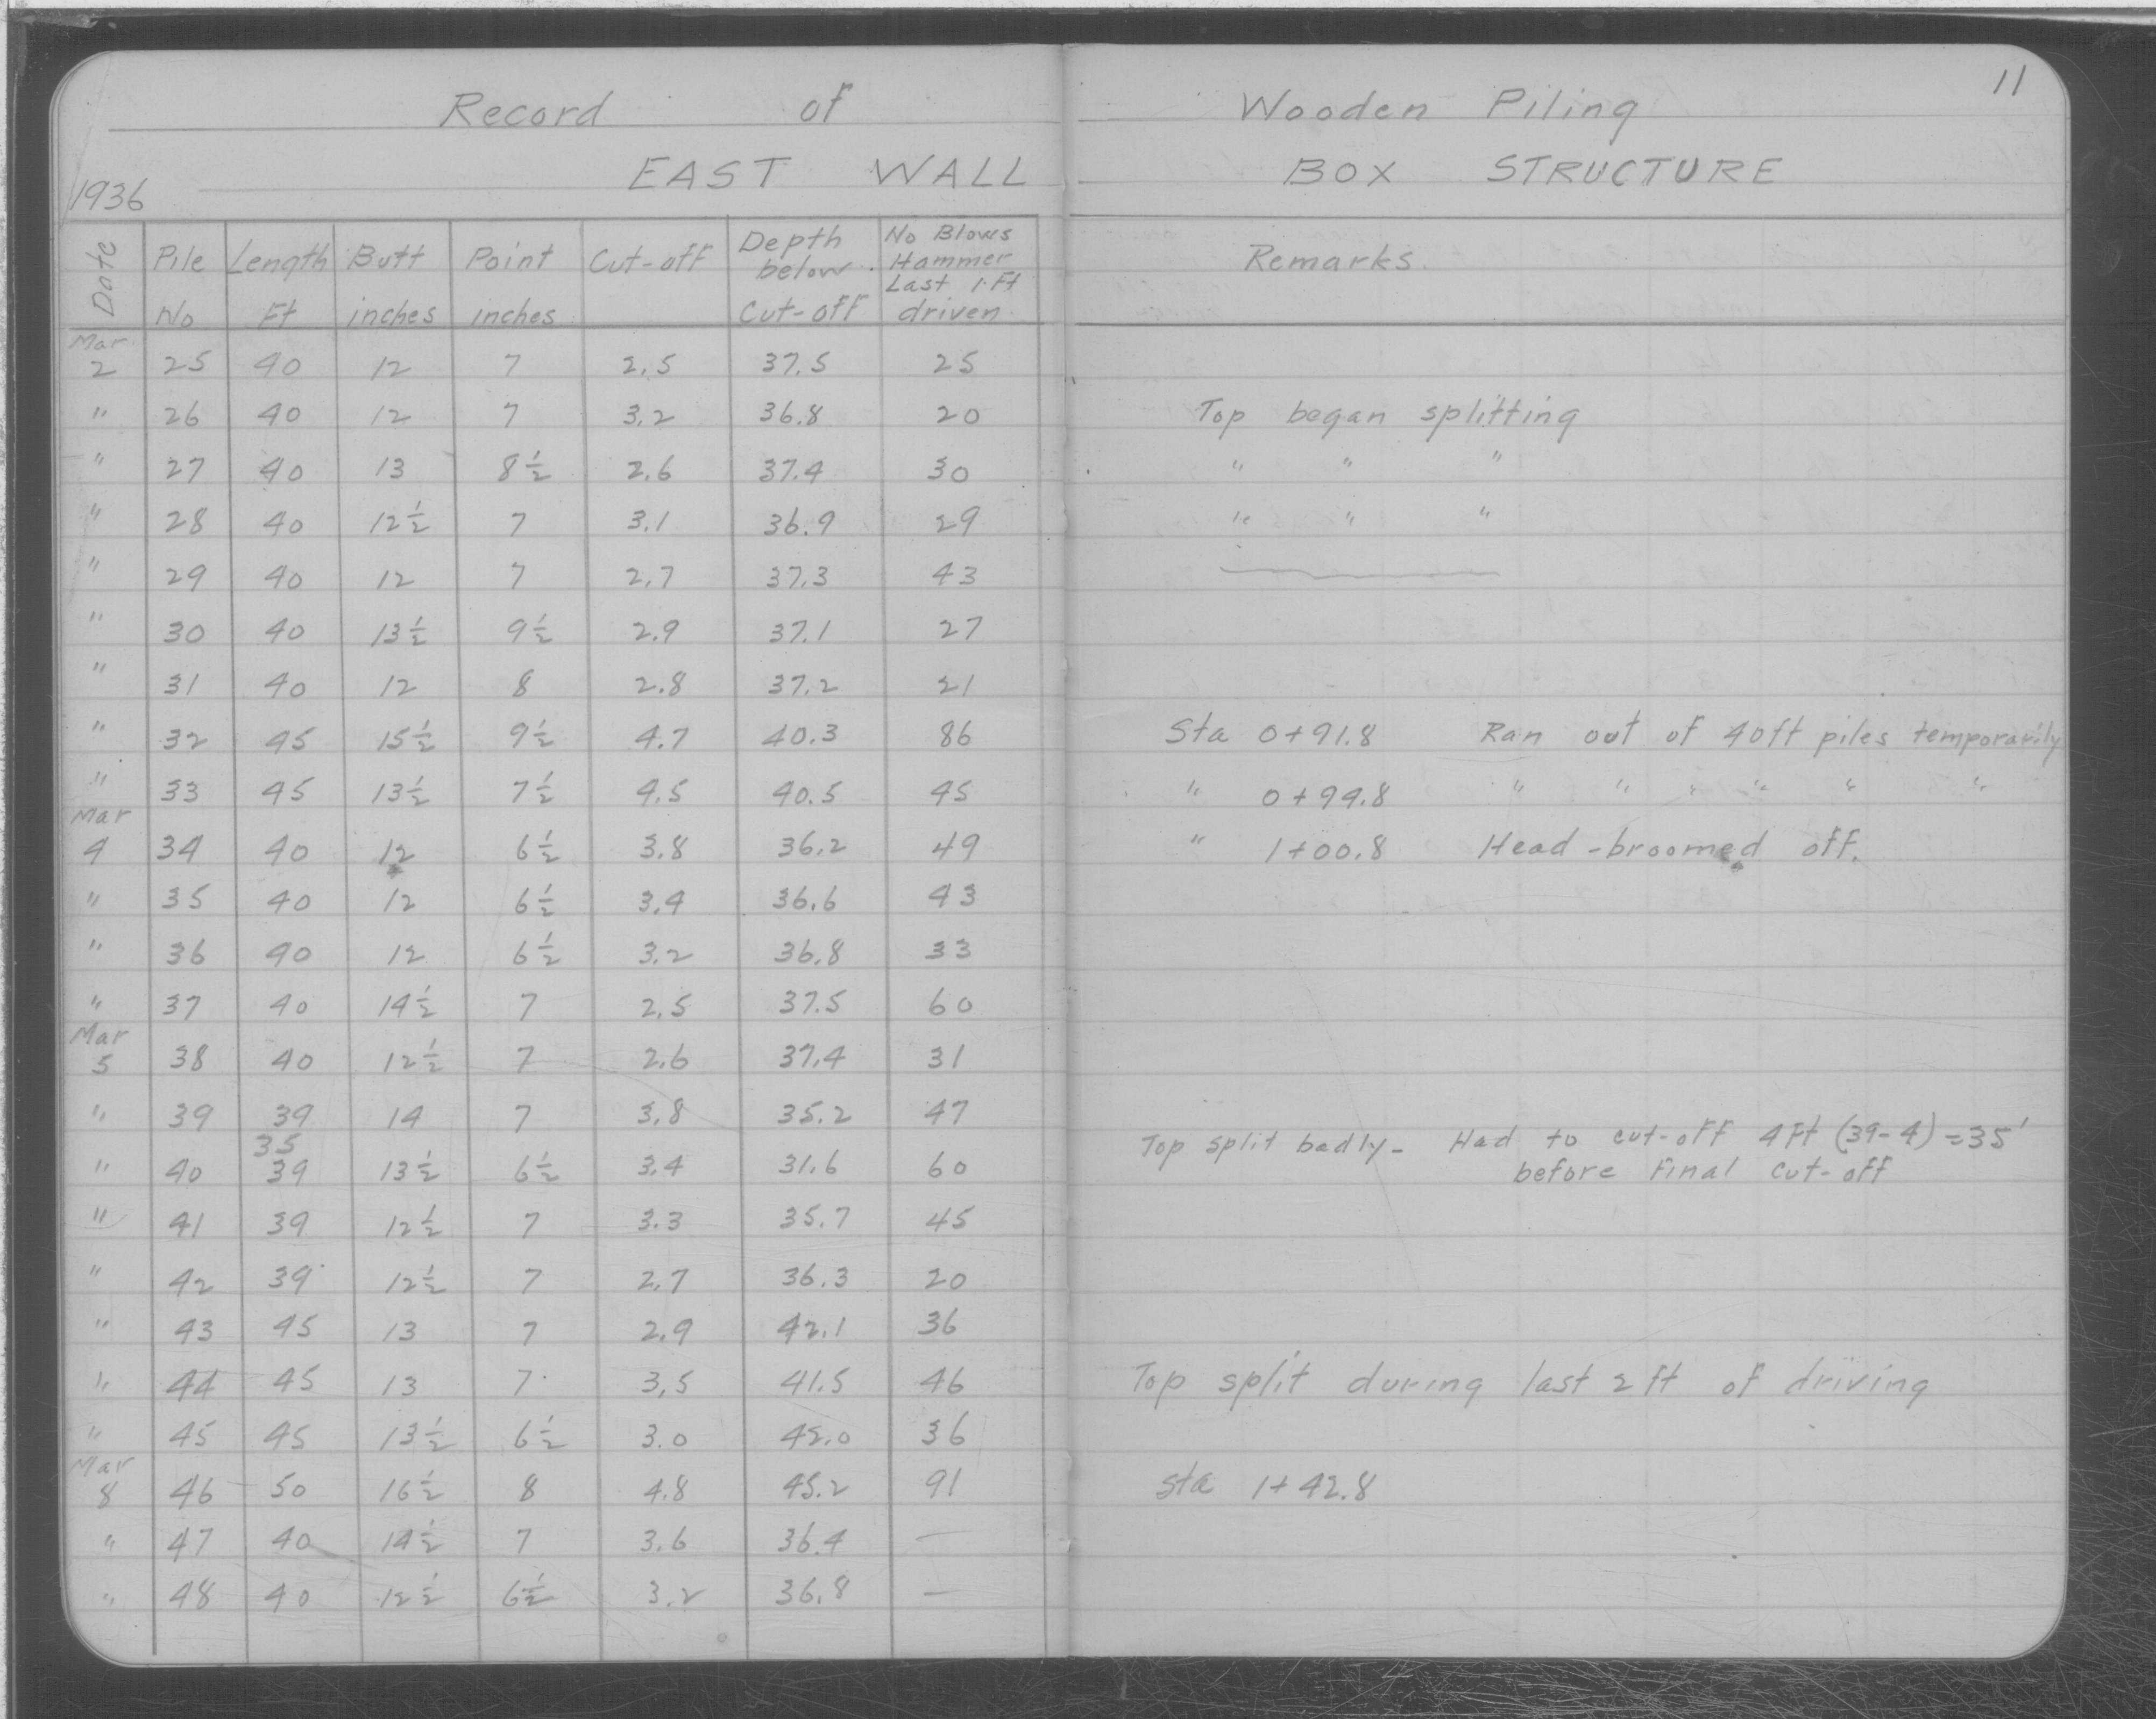 11
Record of Wooden Piling
EAST WALL BOX STRUCTURE
1936
Date Pile No Length Ft Butt inches Point inches Cut-off Depth below Cut-off No Blows Hammer Last 1 Ft driven Remarks
Mar
2 25 40 12 7 2.5 37.5 25
" 26 40 12 7 3.2 36.8 20 Top began splitting
" 27 40 13 8½ 2.6 37.4 30 " " "
" 28 40 12½ 7 3.1 36.9 29 " " "
" 29 40 12 7 2.7 37.3 43
" 30 40 13½ 9½ 2.9 37.1 27
" 31 40 12 8 2.8 37.2 21
" 32 45 15½ 9½ 4.7 40.3 86 Sta 0+91.8 Ran out of 40ft piles temporarily
" 33 45 13½ 7½ 4.5 40.5 45 " 0+94.8 " " " " " "
Mar
4 34 40 12 6½ 3.8 36.2 49 " 1+00.8 Head-broomed off.
" 35 40 12 6½ 3.4 36.6 43
" 36 40 12 6½ 3.2 36.8 33
" 37 40 14½ 7 2.5 37.5 60
Mar
5 38 40 12½ 7 2.6 37.4 31
" 39 39 14 7 3.8 35.2 47
35
" 40 39 13½ 6½ 3.4 31.6 60 Top split badly- Had to cut-off 4Ft (39-4)=35'
before final cut-off
" 41 39 12½ 7 3.3 35.7 45
" 42 39 12½ 7 2.7 36.3 20
" 43 45 13 7 2.9 42.1 36
" 44 45 13 7 3.5 41.5 46 Top split during last 2 ft of driving
" 45 45 13½ 6½ 3.0 42.0 36
Mar
8 46 50 16½ 8 4.8 45.2 91 Sta 1+42.8
" 47 40 14½ 7 3.6 36.4 —
" 48 40 12½ 6½ 3.2 36.8 —